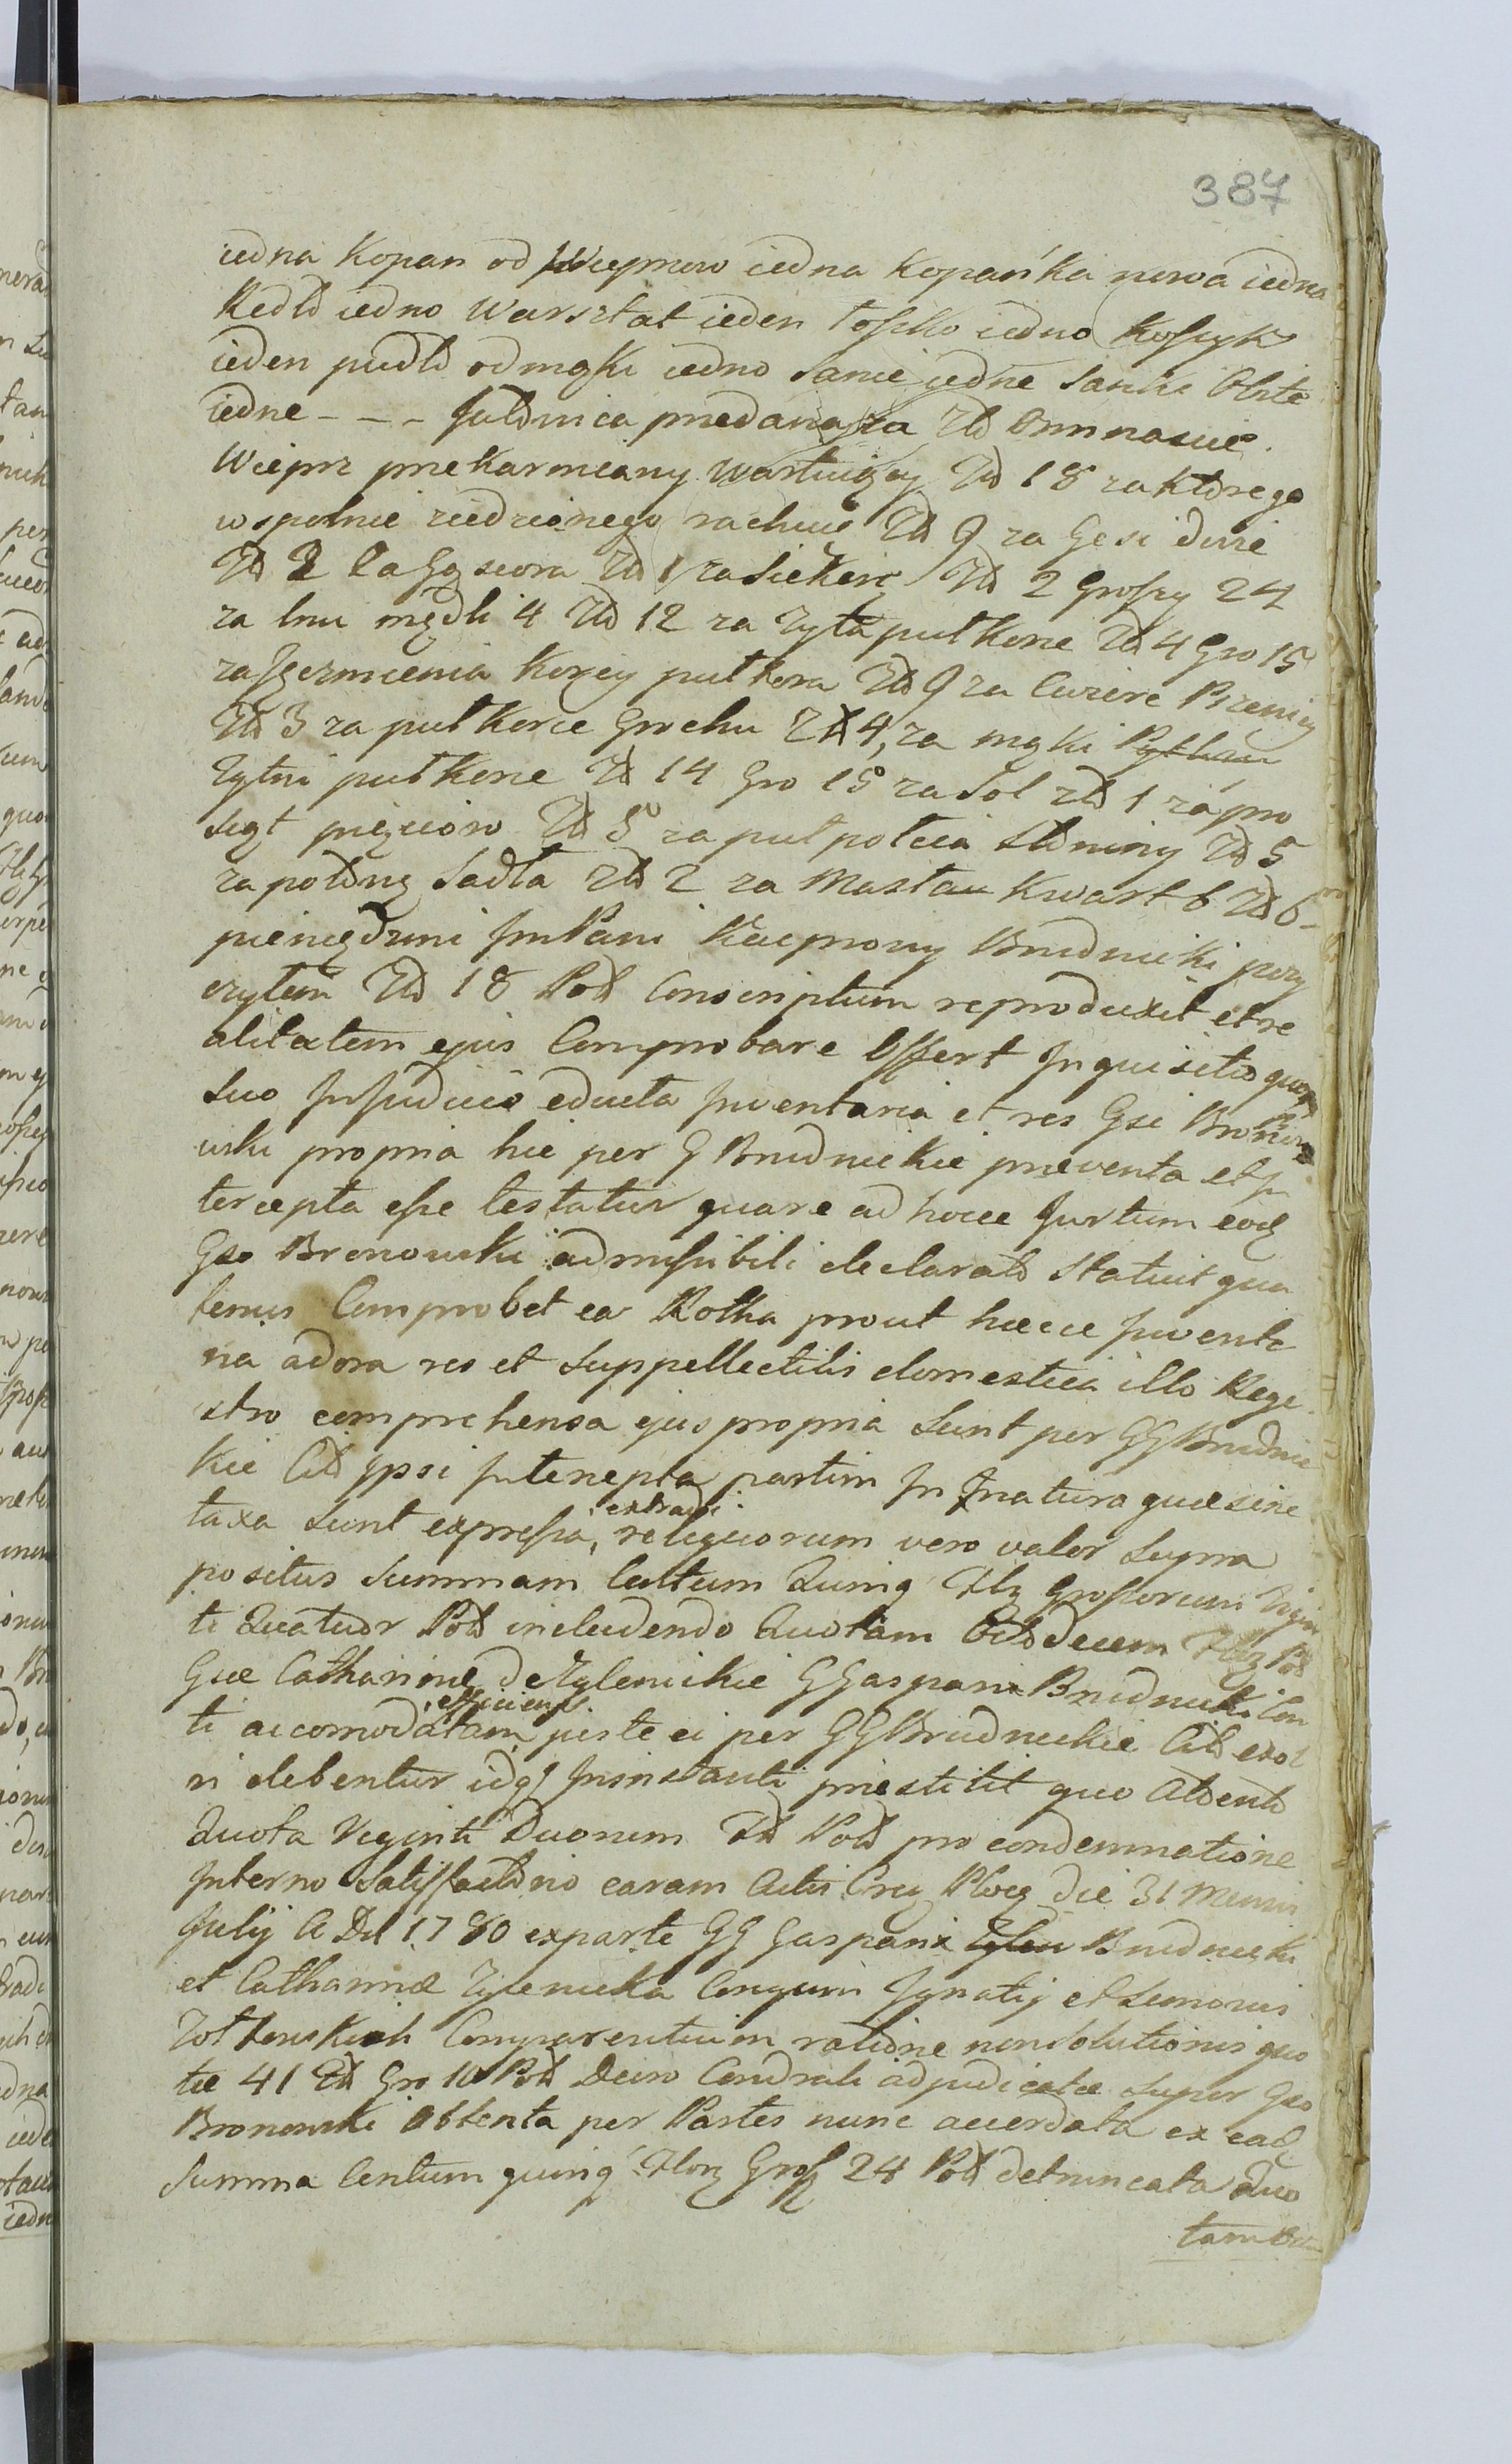 387
iedna Kopan od Wieprzow iedna Kopańka nowa iedna
Kedło iedno Warsztat ieden Łoszko iedno Koszyk
ieden pudło od mąki iedno Sanie iedne Sanki Okute
iedne - - - Jałowica przedana za Zło Osmnascie.
Wieprz przekarmiany wartuiący Zło 18 za ktorego
wspolnie ziedzionego rachuie Zło 9 za Gęsi dwie
Zło 2 za Gąsiora Zło 1 za Siekierę Zło 2 Groszy 24
za lnu mędli 4 Zło 12 za Zyta pułkorce Zło 4 Gro 15
za Jęczmienia Korcy pułtora Zło 9 za Cwierc Pszenicy
Zło 3 za pułkorce Grochu Zł 4, za mąki
Zytni pułkorce Zł 14 Gro 15 za Sol zło 1 za pro
siąt pięcioro Zło 5 za pułpołcia Słoniny Zło 5
za połowę Sadła zło 2 za Masła Kwart 6 Zło 6 -
pieniędzmi JmPani Kacprowy Brudnicki pozy
czyłem Zło 18 Pol Conscriptum reproduxit et re
alitatem ejus Comprobare Offert Inquisitio quoque
suo In Judicio educta Inventaria et res Gsi Brono
wski propria hic per G Brudnickie praeventa et In
tercepta esse testatur quare ad hocce Jurtum eodq
Gso Bronowski admissibili declarato Statuit qua
tenus Comprobet ea Rotha prout haecce Inventa
ria adora res et Suppellectilis domestica illo Regi
stro comprehensa ejus propria Sunt per GG Brudnic
kie Cito Ipsi Intercepta partim In natura quae sine
taxa sunt expressa, extradi reliquorum vero valor Supra
positus Summam Centum Quinq Flz Grossorum Vigin
ti Quatuor Pol includendo Quotam Octodecem Flz Pol
Gsae Catharinae de Zylenickie G Gaspari Brudnicki Con
ti accomodatam, efficiens juste ei per GG Brudnickie Cito exol
vi debentur idq Ininstanti praestitit quo Attento
Quota Viginti Duorum Zł Pol pro condemnatione
Interno Satisfactorio earum Actis Crei Ploceg die 31 Mensis
Julij A Dd 1780 exparte GG Gaspari Brudnicki
et Catharinae Zylenicka Conjugum Ignatij et Simonis
Comparentium ratione non Solutionis quo
tae 41 Zł Gro 10 Pol Deiro Condrali adjudicatae Super Gso
Bronowski Obtenta per Partes nunc accordata ex eadq
Summa Centum quinq Flor Gros 24 Pol detruncata Quo
tam